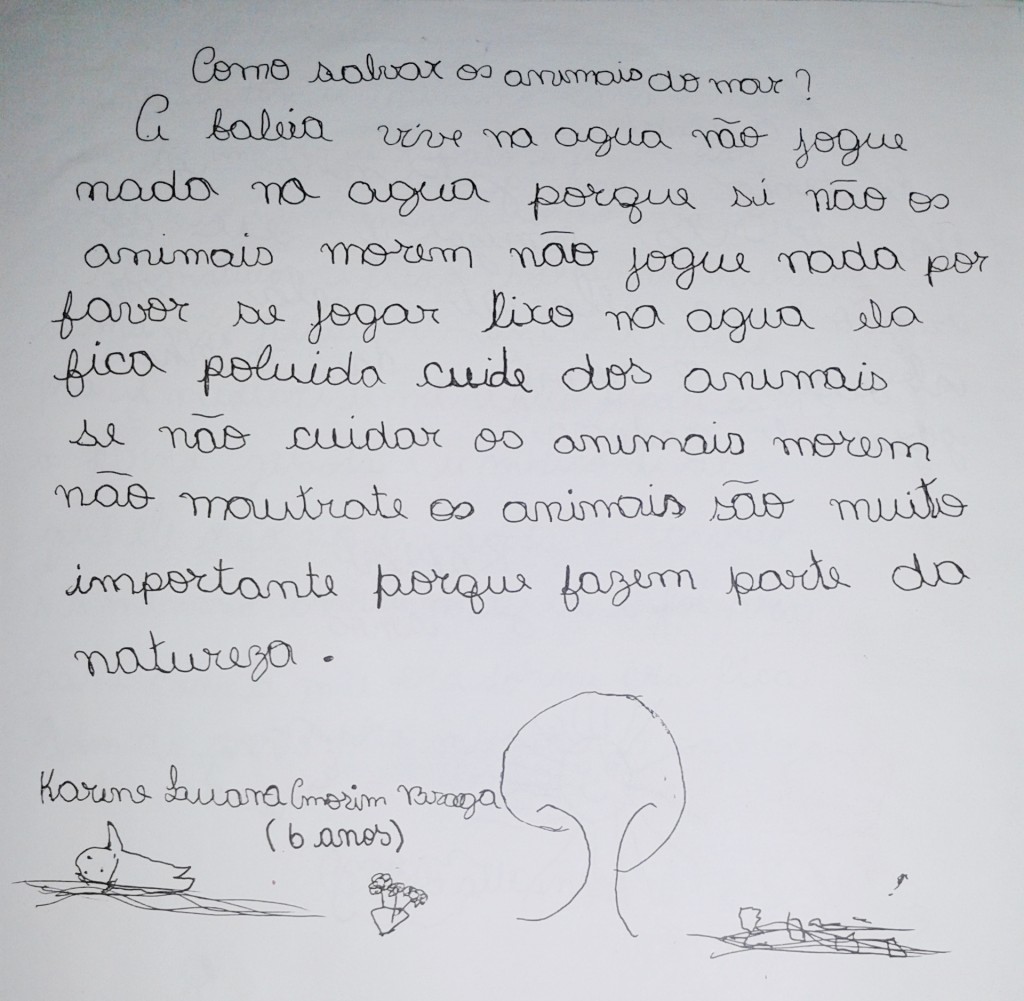 Como salvar os animais do mar?
A baleia vive na agua não jogue
nada na agua porque si não os
animais morem não jogue nada por
favor se jogar lixo na agua ela
fica poluida cuide dos animais
se não cuidar os animais morem
não mautrate os animais são muito
importante porque fazem parte da
natureza.
Karine Luuara Amorim Braga
(6 anos)